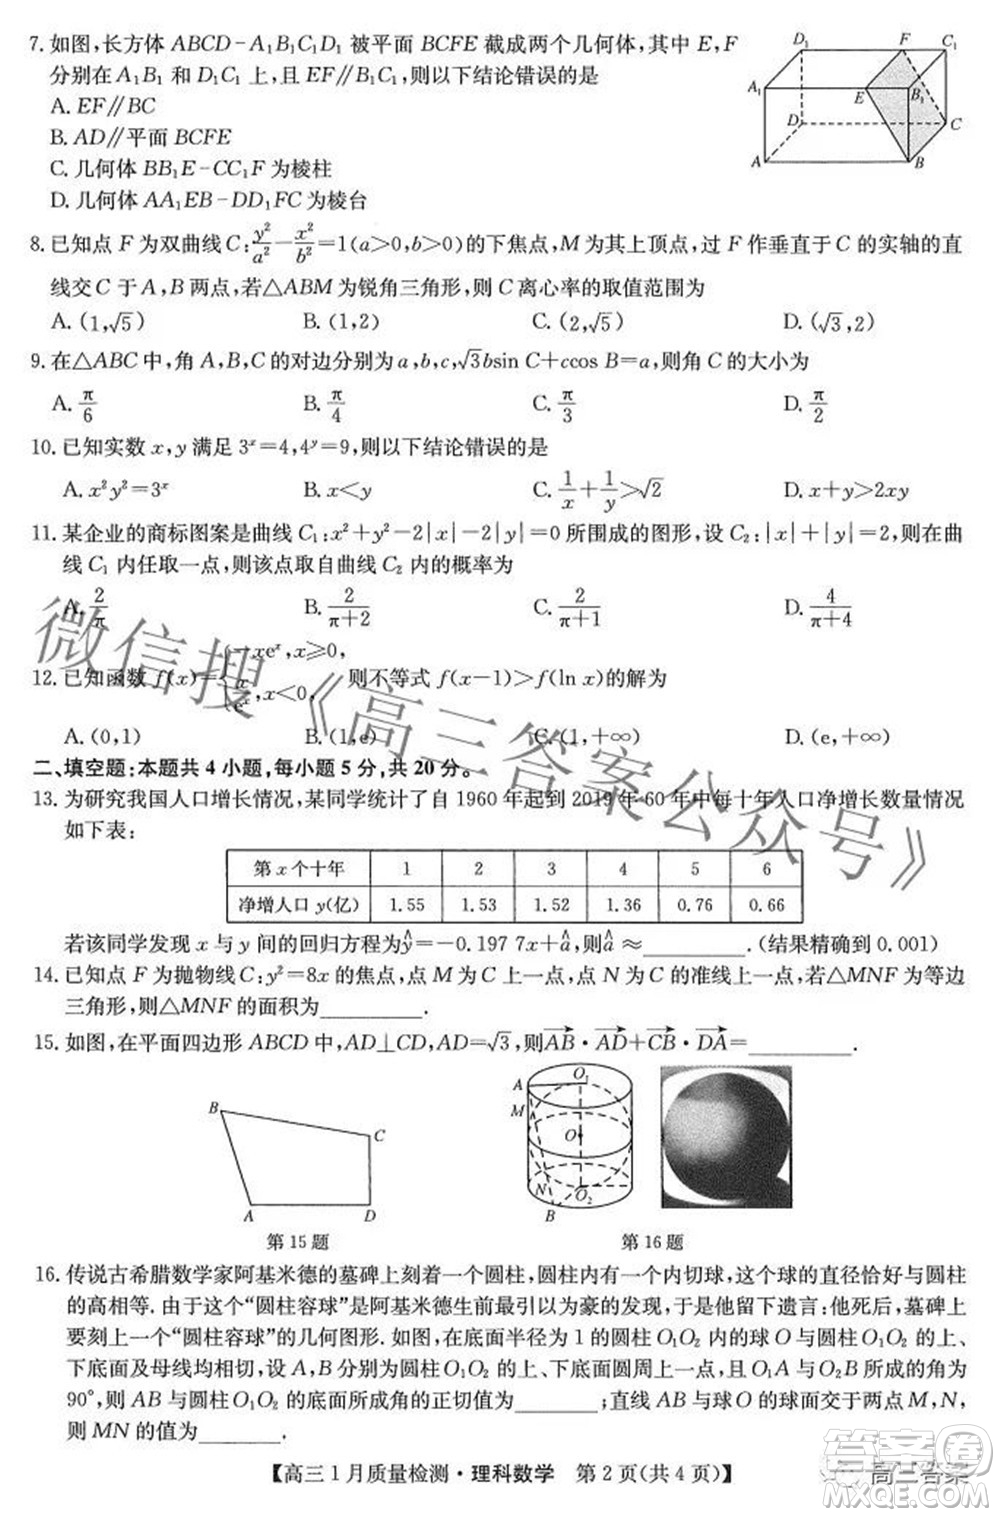 7. 如图,长方体 ABCD-A₁B₁C₁D₁ 被平面 BCFE 截成两个几何体,其中 E,F
分别在 A₁B₁ 和 D₁C₁ 上,且 EF∥B₁C₁,则以下结论错误的是
A. EF∥BC
B. AD∥平面 BCFE
C. 几何体 BB₁E-CC₁F 为棱柱
D. 几何体 AA₁EB-DD₁FC 为棱台
D₁ F C₁
A₁ E B₁
D C
A B
8. 已知点 F 为双曲线 C: y²/a² - x²/b² =1(a>0,b>0)的下焦点,M 为其上顶点,过 F 作垂直于 C 的实轴的直
线交 C 于 A,B 两点,若△ABM 为锐角三角形,则 C 离心率的取值范围为
A. (1,√5) B. (1,2) C. (2,√5) D. (√3,2)
9. 在△ABC 中,角 A,B,C 的对边分别为 a,b,c,√3bsin C+ccos B=a,则角 C 的大小为
A. π/6 B. π/4 C. π/3 D. π/2
10. 已知实数 x,y 满足 3ˣ=4,4ʸ=9,则以下结论错误的是
A. x²y²=3ˣ B. x<y C. 1/x+1/y>√2 D. x+y>2xy
11. 某企业的商标图案是曲线 C₁:x²+y²-2|x|-2|y|=0 所围成的图形,设 C₂:|x|+|y|=2,在曲
线 C₁ 内任取一点,则该点取自曲线 C₂ 内的概率为
A. 2/π B. 2/(π+2) C. 2/(π+1) D. 4/(π+2)
12. 已知函数 f(x)={-xeˣ,x≥0, x/eˣ,x<0, 则不等式 f(x-1)>f(ln x)的解为
A. (0,1) B. (1,e) C. (1,+∞) D. (e,+∞)
二、填空题:本题共 4 小题,每小题 5 分,共 20 分。
13. 为研究我国人口增长情况,某同学统计了自 1960 年起到 2019 年 60 年中每十年人口净增长数量情况
如下表:
第 x 个十年 1 2 3 4 5 6
净增人口 y(亿) 1.55 1.53 1.52 1.36 0.76 0.66
若该同学发现 x 与 y 间的回归方程为ŷ=-0.197 7x+â,则â≈________.(结果精确到 0.001)
14. 已知点 F 为抛物线 C:y²=8x 的焦点,点 M 为 C 上一点,点 N 为 C 的准线上一点,若△MNF 为等边
三角形,则△MNF 的面积为________.
15. 如图,在平面四边形 ABCD 中,AD⊥CD,AD=√3,则AB·AD+CB·DA=________.
B C A D
第 15 题
A O₁ M O N O₂ B
第 16 题
16. 传说古希腊数学家阿基米德的墓碑上刻着一个圆柱,圆柱内有一个内切球,这个球的直径恰好与圆柱
的高相等. 由于这个“圆柱容球”是阿基米德生前最引以为豪的发现,于是他留下遗言:他死后,墓碑上
要刻上一个“圆柱容球”的几何图形. 如图,在底面半径为 1 的圆柱 O₁O₂ 内的球 O 与圆柱 O₁O₂ 的上、
下底面及母线均相切,设 A,B 分别为圆柱 O₁O₂ 的上、下底面圆周上一点,且 O₁A 与 O₂B 所成的角为
90°,则 AB 与圆柱 O₁O₂ 的底面所成角的正切值为________;直线 AB 与球 O 的球面交于两点 M,N,
则 MN 的值为________.
【高三 1 月质量检测·理科数学 第 2 页(共 4 页)】
微信搜《高三答案公众号》
高三答案
答案圈
MXQE.COM